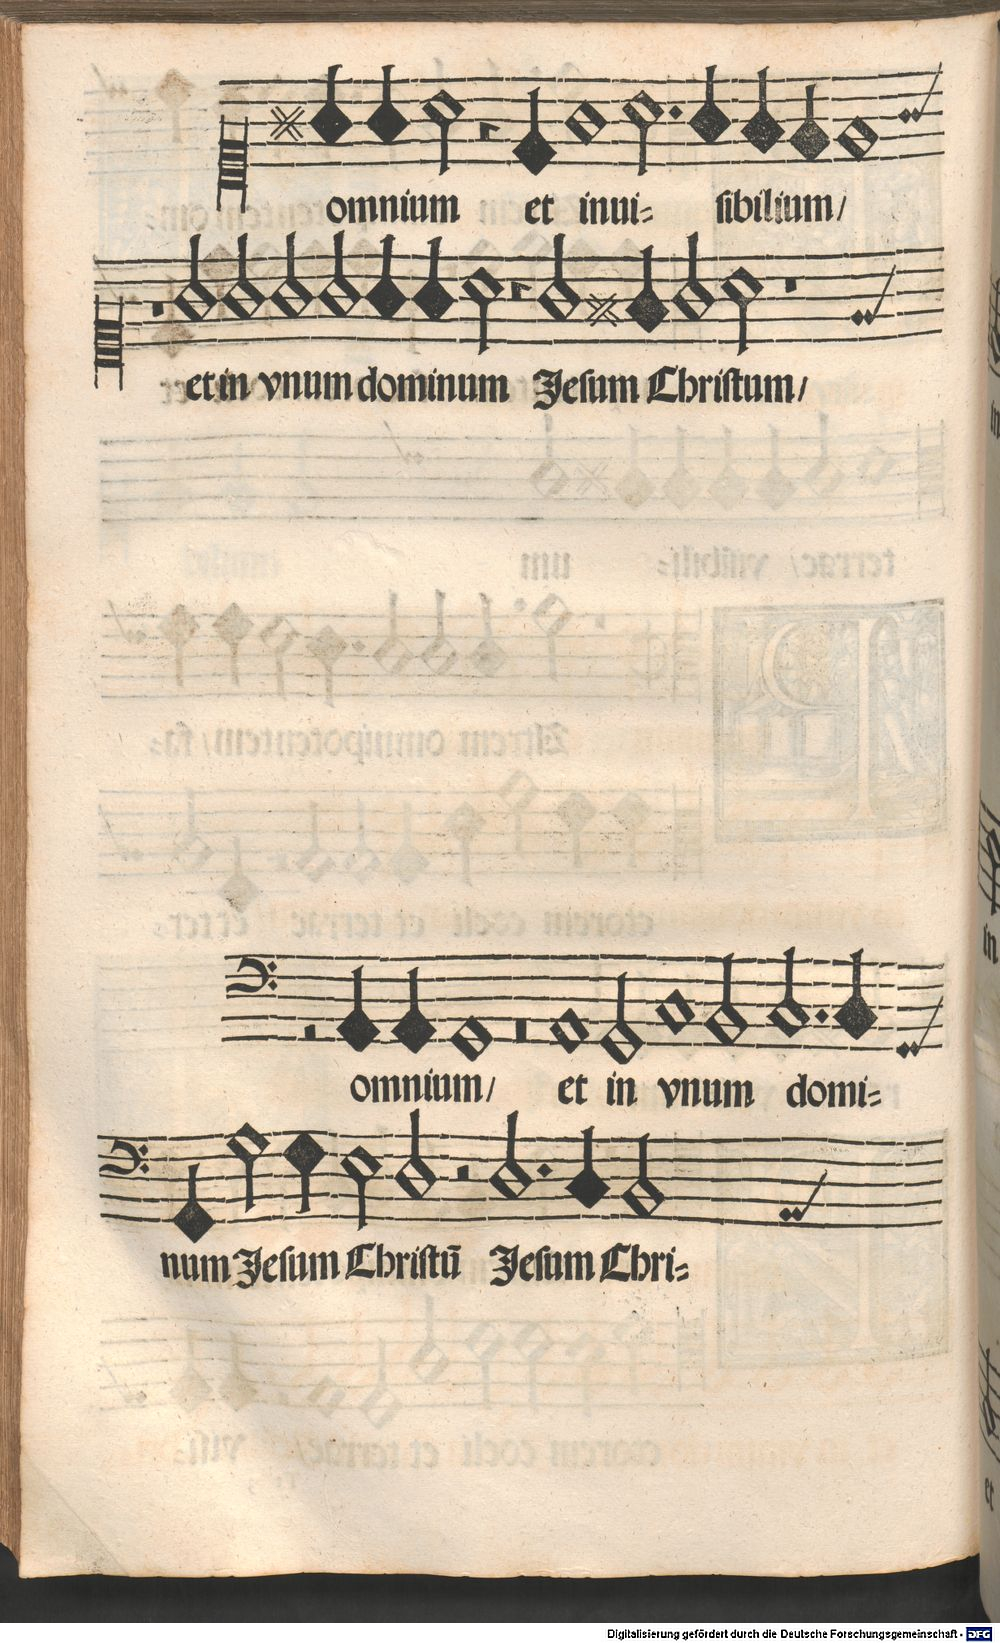 omnium et inui= sibilium/
et in vnum dominum Jesum Christum/
omnium/ et in vnum domi=
num Jesum Christū Jesum Chri=
in
in
et
Digitalisierung gefördert durch die Deutsche Forschungsgemeinschaft - DFG